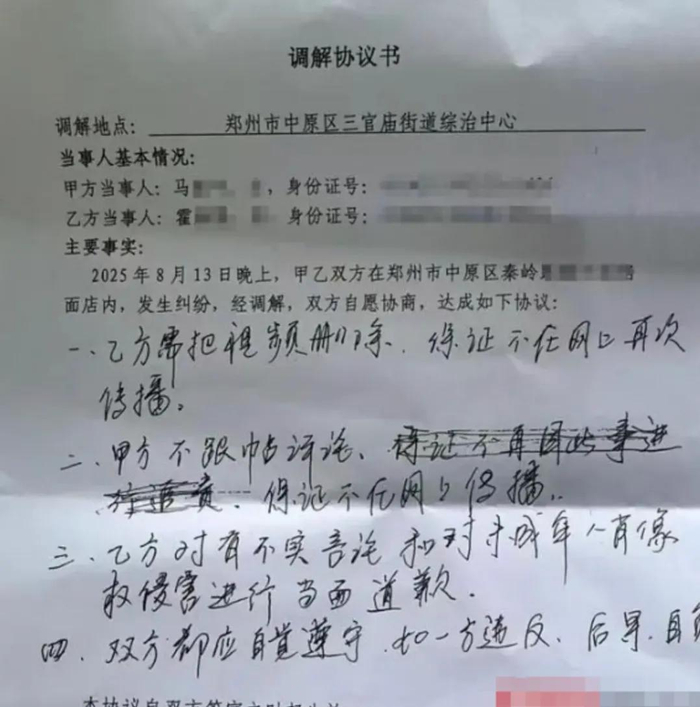 调解协议书
调解地点： 郑州市中原区三官庙街道综治中心
当事人基本情况：
甲方当事人：马 ，身份证号：
乙方当事人：霍 ，身份证号：
主要事实：
2025年8月13日晚上，甲乙双方在郑州市中原区秦岭
面店内，发生纠纷，经调解，双方自愿协商，达成如下协议：
一、乙方需把视频删除、保证不在网上再次
传播。
二、甲方不跟帖评论、保证不再因此事进
行追责、保证不在网上传播。
三、乙方对有不实言论和对未成年人肖像
权侵害进行当面道歉.
四、双方都应自觉遵守.如一方违反、后果自负
本协议自双方签字之时起生效